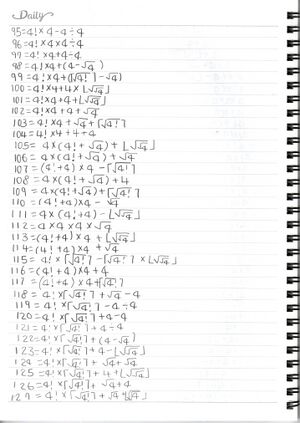 Daily
95=4!×4-4÷4
96=4!×4×4÷4
97=4!×4+4÷4
98=4!×4+(4-√4)
99=4!×4+(⌈√4!⌉-√4)
100=4!×4+4×⌊√√4⌋
101=4!×4+4+⌊√√4⌋
102=4!×4+4+√4
103=4!×4+√4+⌈√4!⌉
104=4!×4+4+4
105=4×(4!+√4)+⌊√√4⌋
106=4×(4!+√4)+√4
107=(4!+4)×4-⌈√4!⌉
108=4×(4!+√4)+4
109=4×(4!+√4)+⌈√4!⌉
110=(4!+4)×4-√4
111=4×(4!+4)-⌊√√4⌋
112=4×4×4×√4
113=(4!+4)×4+⌊√√4⌋
114=(4!+4)×4+√4
115=4!×⌈√4!⌉-⌈√4!⌉×⌊√√4⌋
116=(4!+4)×4+4
117=(4!+4)×4+⌈√4!⌉
118=4!×⌈√4!⌉+√4-4
119=4!×⌈√4!⌉-4÷4
120=4!×⌈√4!⌉+4-4
121=4!×⌈√4!⌉+4÷4
122=4!×⌈√4!⌉+(4-√4)
123=4!×⌈√4!⌉+4-⌊√√4⌋
124=4!×⌈√4!⌉+√4+√4
125=4!×⌈√4!⌉+4+⌊√√4⌋
126=4!×⌈√4!⌉+√4+4